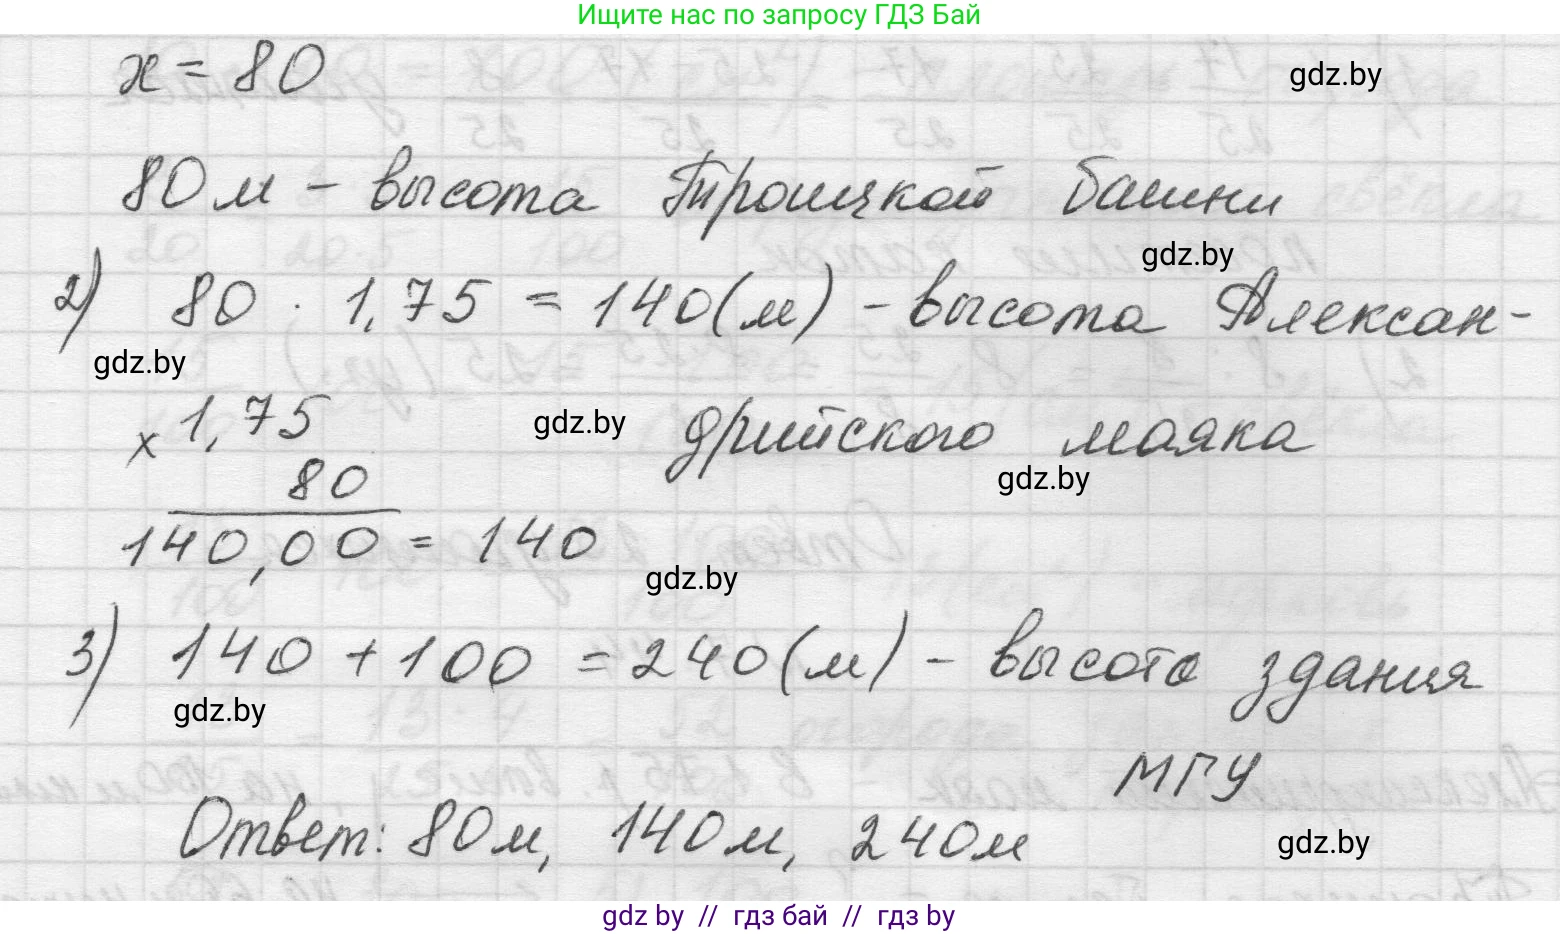 Ищите нас по запросу ГДЗ Бай
x = 80
gdz.by
80 м – высота Троицкой башни
gdz.by
2) 80 · 1,75 = 140 (м) – высота Алексан-
gdz.by
× 1,75
gdz.by
дрийского маяка
80
gdz.by
140,00 = 140
gdz.by
3) 140 + 100 = 240 (м) – высота здания
gdz.by
МГУ
Ответ: 80 м, 140 м, 240 м
gdz.by
gdz by // гдз бай // гдз by